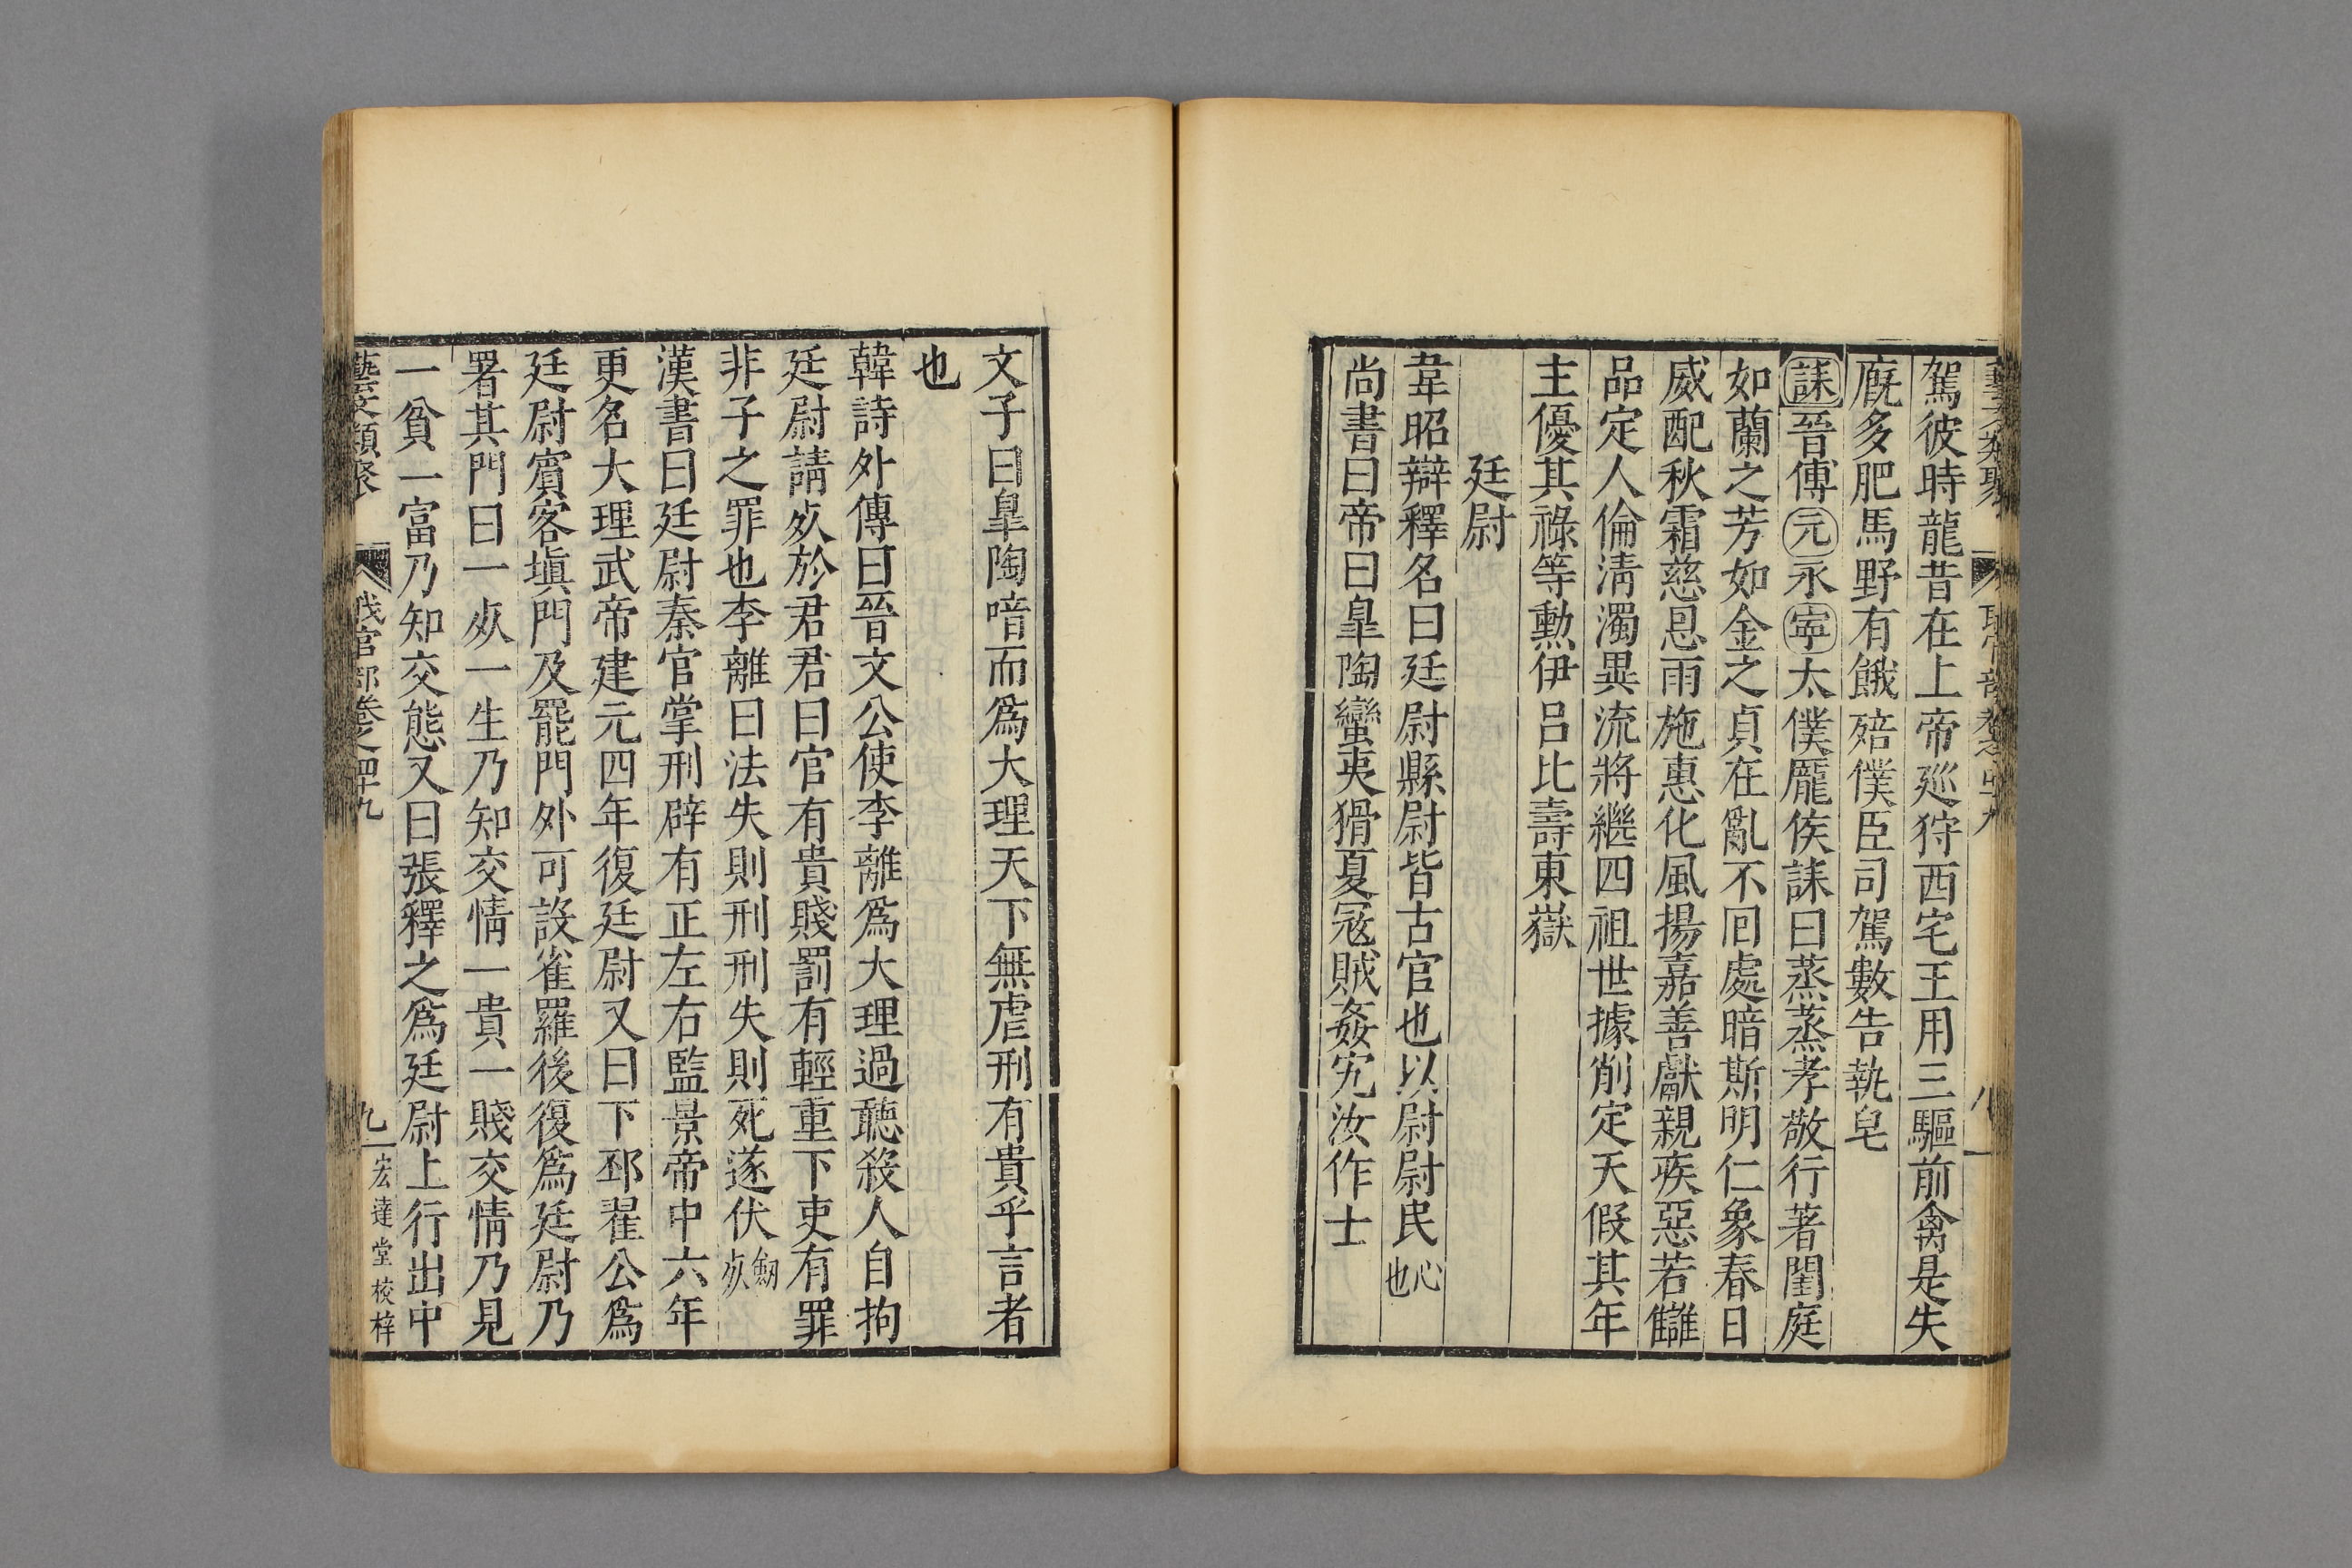 駕彼時龍昔在上帝廵狩西宅王用三驅前禽是失
廐多肥馬野有餓殍僕臣司駕敢告執皂
誄晉傅元永寧太僕龎侯誄曰蒸蒸孝敬行著閨庭
如蘭之芳如金之貞在亂不囘處暗斯明仁象春日
威配秋霜慈恩雨施惠化風揚嘉善獻親疾惡若讎
品定人倫淸濁異流將繼四祖世據削定天假其年
主優其祿等勳伊呂比壽東嶽
廷尉
韋昭辯釋名曰廷尉縣尉皆古官也以尉尉民心也
尚書曰帝曰臯陶蠻夷猾夏寇賊姦宄汝作士
文子曰臯陶喑而爲大理天下無虐刑有貴乎言者
也
韓詩外傳曰晉文公使李離爲大理過聽殺人自拘
廷尉請死於君君曰官有貴賤罰有輕重下吏有罪
非子之罪也李離曰法失則刑刑失則死遂伏劔死
漢書曰廷尉秦官掌刑辟有正左右監景帝中六年
更名大理武帝建元四年復廷尉又曰下邳翟公爲
廷尉賓客塡門及罷門外可設雀羅後復爲廷尉乃
署其門曰一死一生乃知交情一貴一賤交情乃見
一貧一富乃知交態又曰張釋之爲廷尉上行出中
藝文類聚 職官部卷之四十九 九 宏達堂校梓